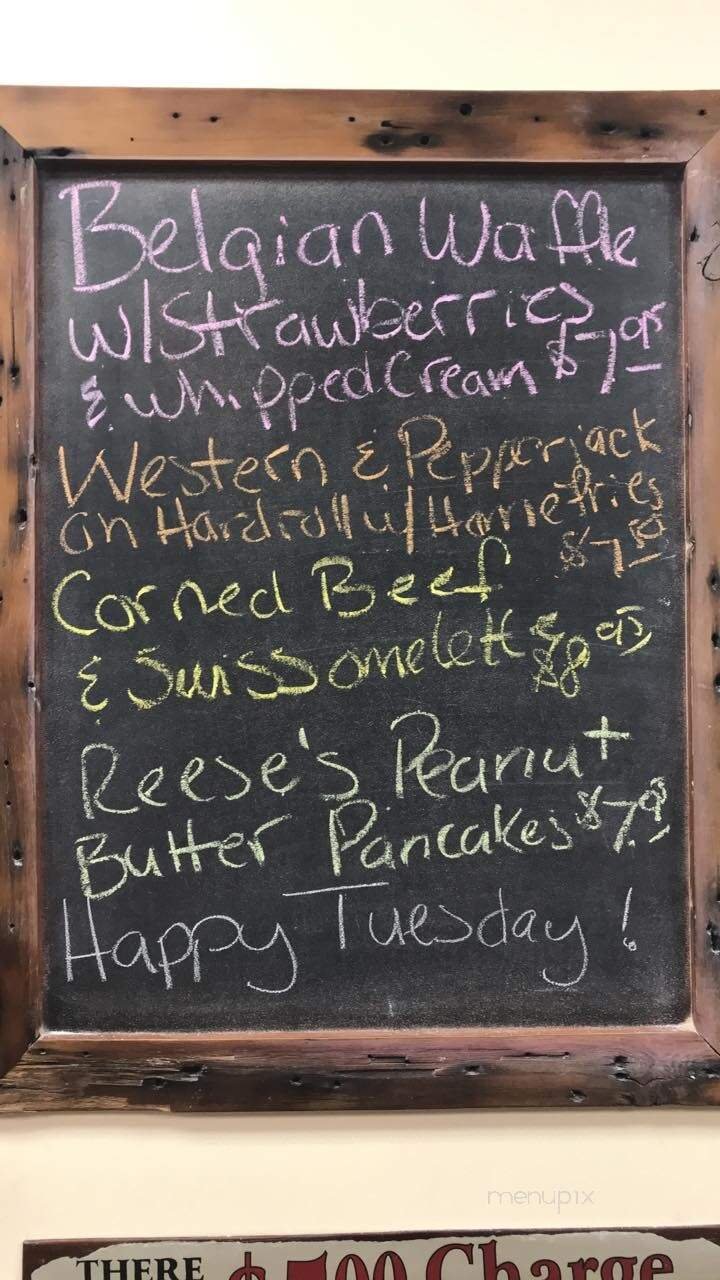 Belgian Waffle
w/Strawberries
& Whipped Cream $7.95
Western & Pepperjack
on Hardroll w/ Homefries
$7.50
Corned Beef
& Swiss omelett $8.95
Reese's Peanut
Butter Pancakes $7.95
Happy Tuesday!
menupix
THERE $ .00 Charge